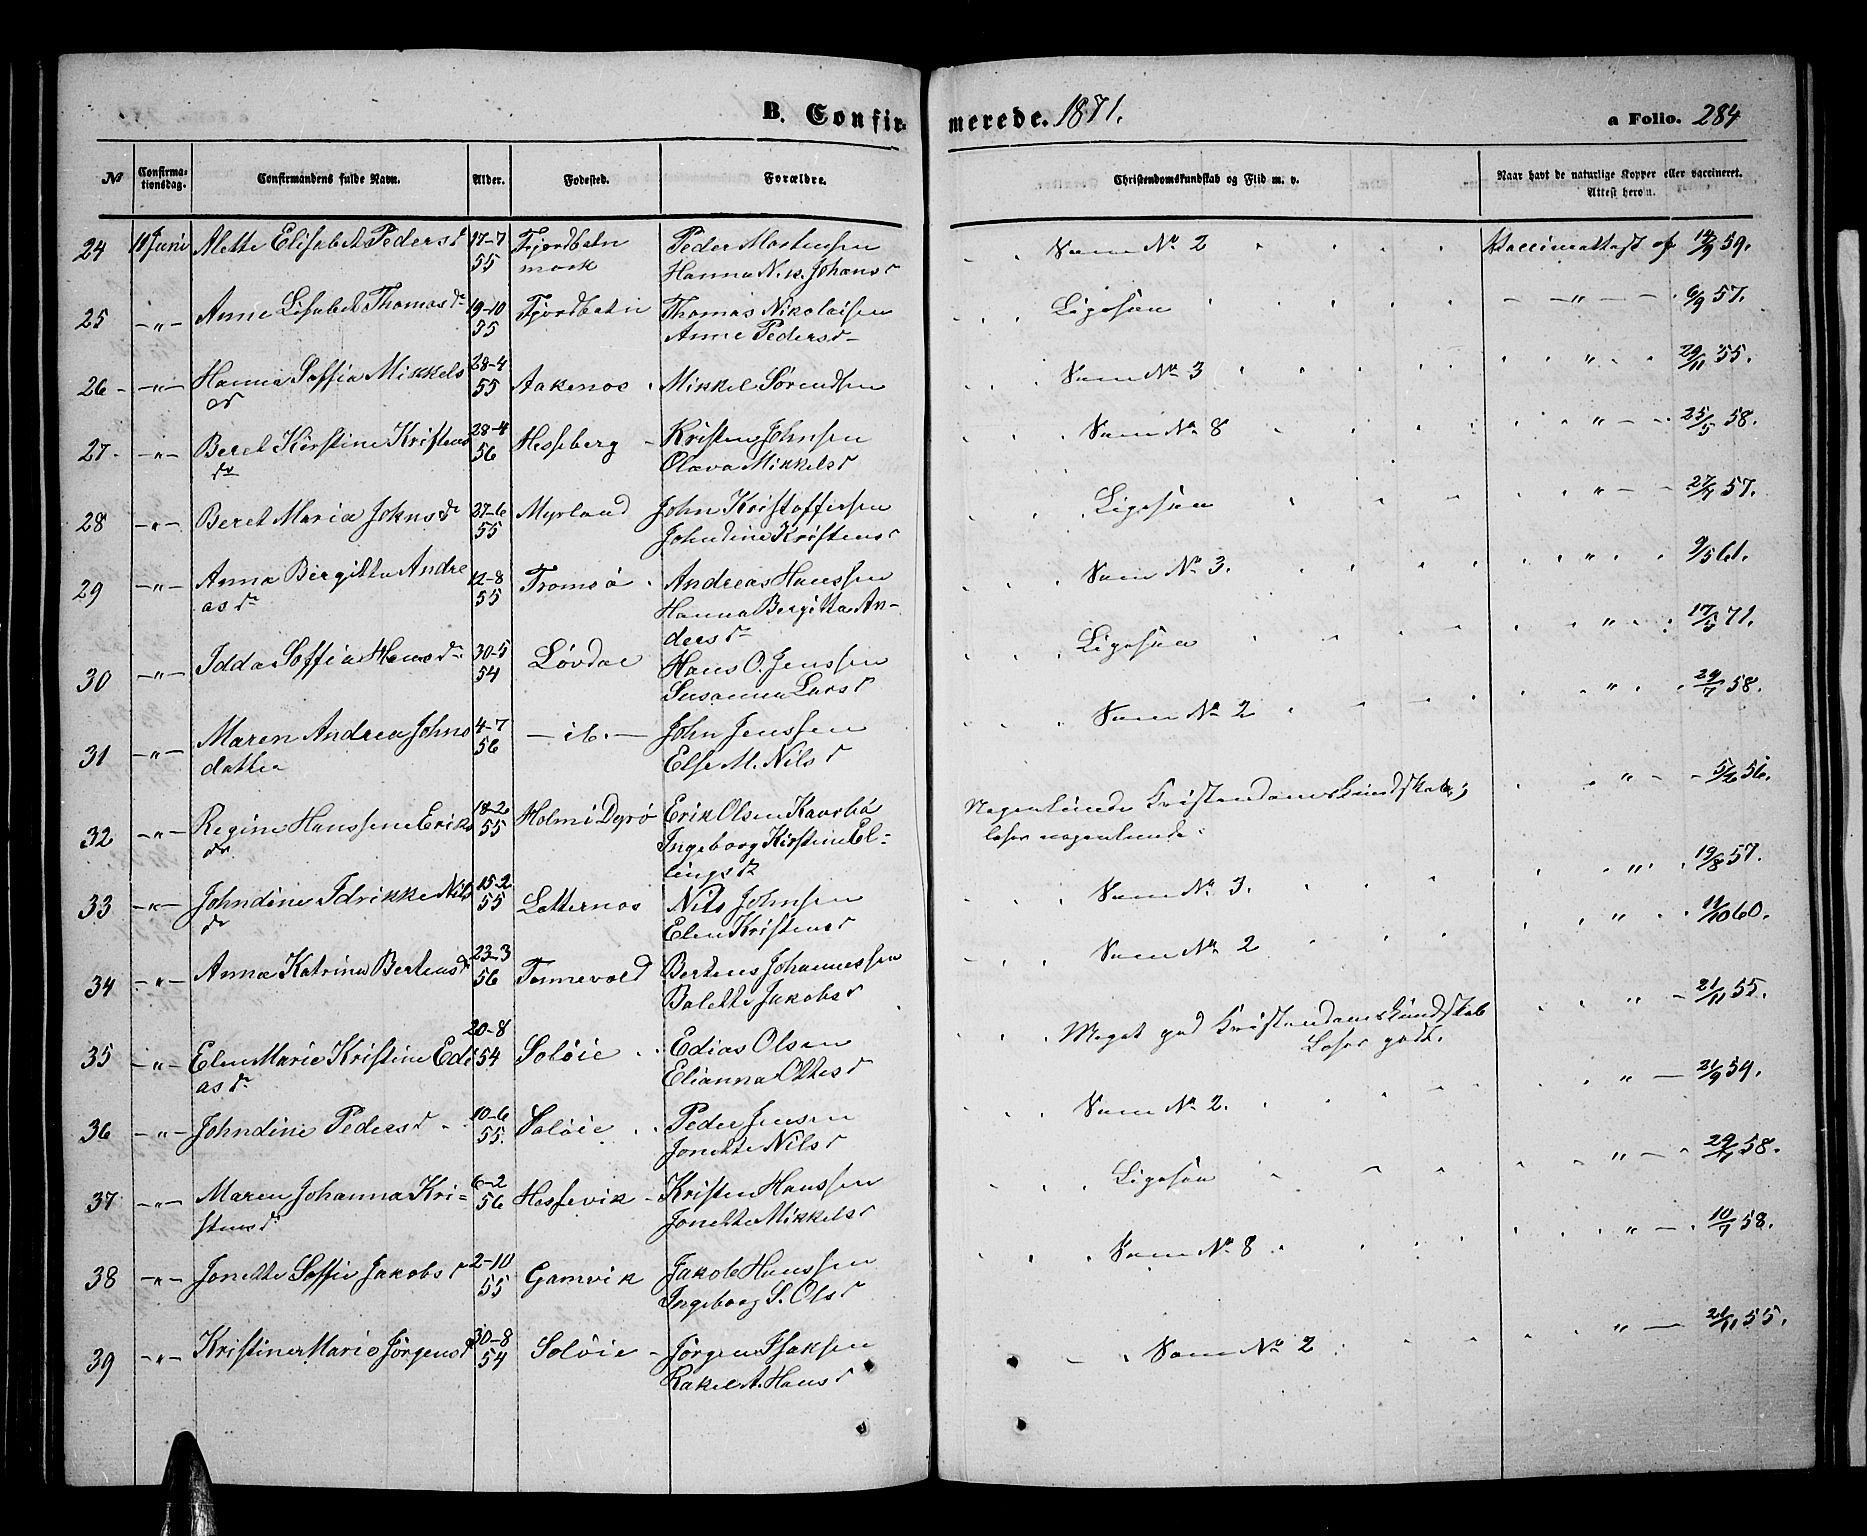 B. Confirmerede. 1871.
a Folio. 284
No
Confirmationsdag.
Confirmandens fulde Navn.
Alder.
Fødested.
Forældre.
Christendomskundskab og Flid m. v.
Naar havt de naturlige Kopper eller vaccineret. Attest herom.
24 11 Juni Alette Elisabet Pedersdr 17-7 55 Fjordbotnmark Peder Mortensen Hanna N. Johansdr Som No 2 Vaccinattest af 14/9 59.
25 -"- Anne Lisabet Thomasdr 19-10 55 Fjordbotn Thomas Nikolaisen Anne Pedersdr Ligesaa " 6/9 57.
26 -"- Hanna Soffia Mikkelsdr 28-4 55 Aakenes Mikkel Sørendsen Som No 3 " 29/11 55.
27 -"- Beret Kirstine Kristensdr 28-4 56 Hesseberg Kristen Johnsen Olava Mikkelsdr Som No 8 " 25/5 58.
28 -"- Beret Maria Johnsdr 27-6 55 Myrland John Kristoffersen Johndine Kristensdr Ligesaa " 27/7 57.
29 -"- Anna Birgitta Andreasdr 12-8 55 Tromsø Andreas Hanssen Hanna Bergitta Andersdr Som No 3. " 9/5 61.
30 -"- Idda Soffia Hansdr 30-5 54 Løvdal Hans O. Jenssen Susanna Larsdr Ligesaa " 17/5 71.
31 -"- Maren Andrea Johnsdatter 4-7 56 - ib. - John Jenssen Else M. Nilsdr Som No 2 " 29/7 58.
32 -"- Regine Hanssine Eriksdr 18-2 55 Holm i Dyrø Erik Olsen Kavsbø Ingeborg Kirstine Ellingsdr Nogenlunde Kristendomskundskab; læser nogenlunde. " 5/6 56.
33 -"- Johndine Idrikke Nilsdr 15-2 55 Lotternes Nils Johnsen Elen Kristensdr Som No 3. " 19/8 57.
34 -"- Anna Katrina Bertensdr 23-3 56 Tennevold Bertens Johannessen Balette Jakobsdr Som No 2 " 11/10 60.
35 -"- Elen Marie Kristine Ediasdr 20-8 54 Soløie Edias Olsen Elianna Ottesdr Meget god Kristendomskundskab Læser godt. " 21/11 55.
36 -"- Johndine Pedersdr 10-6 55. Soløie Peder Jensen Jonette Nilsdr Som No 2. " 21/9 59.
37 -"- Maren Johanna Kristensdr 6-2 56 Hessevik Kristen Hanssen Jonette Mikkelsdr Ligesaa " 58.
38 -"- Jonette Soffie Jakobsdr 2-10 55 Gamvik Jakob Hanssen Ingeborg S. Olsdr Som No 8 " 10/7 58.
39 -"- Kristine Marie Jørgensdr 30-8 54 Soløie Jørgen Isaksen Rakel A. Hansdr Som No 2 " 21/11 55.